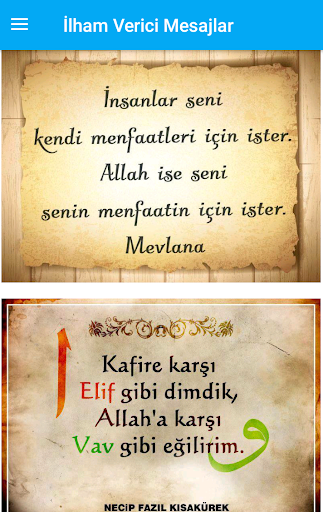 İlham Verici Mesajlar
İnsanlar seni
kendi menfaatleri için ister.
Allah ise seni
senin menfaatin için ister.
Mevlana
ا
Kafire karşı
Elif gibi dimdik,
Allah'a karşı
Vav gibi eğilirim.
و
NECİP FAZIL KISAKÜREK